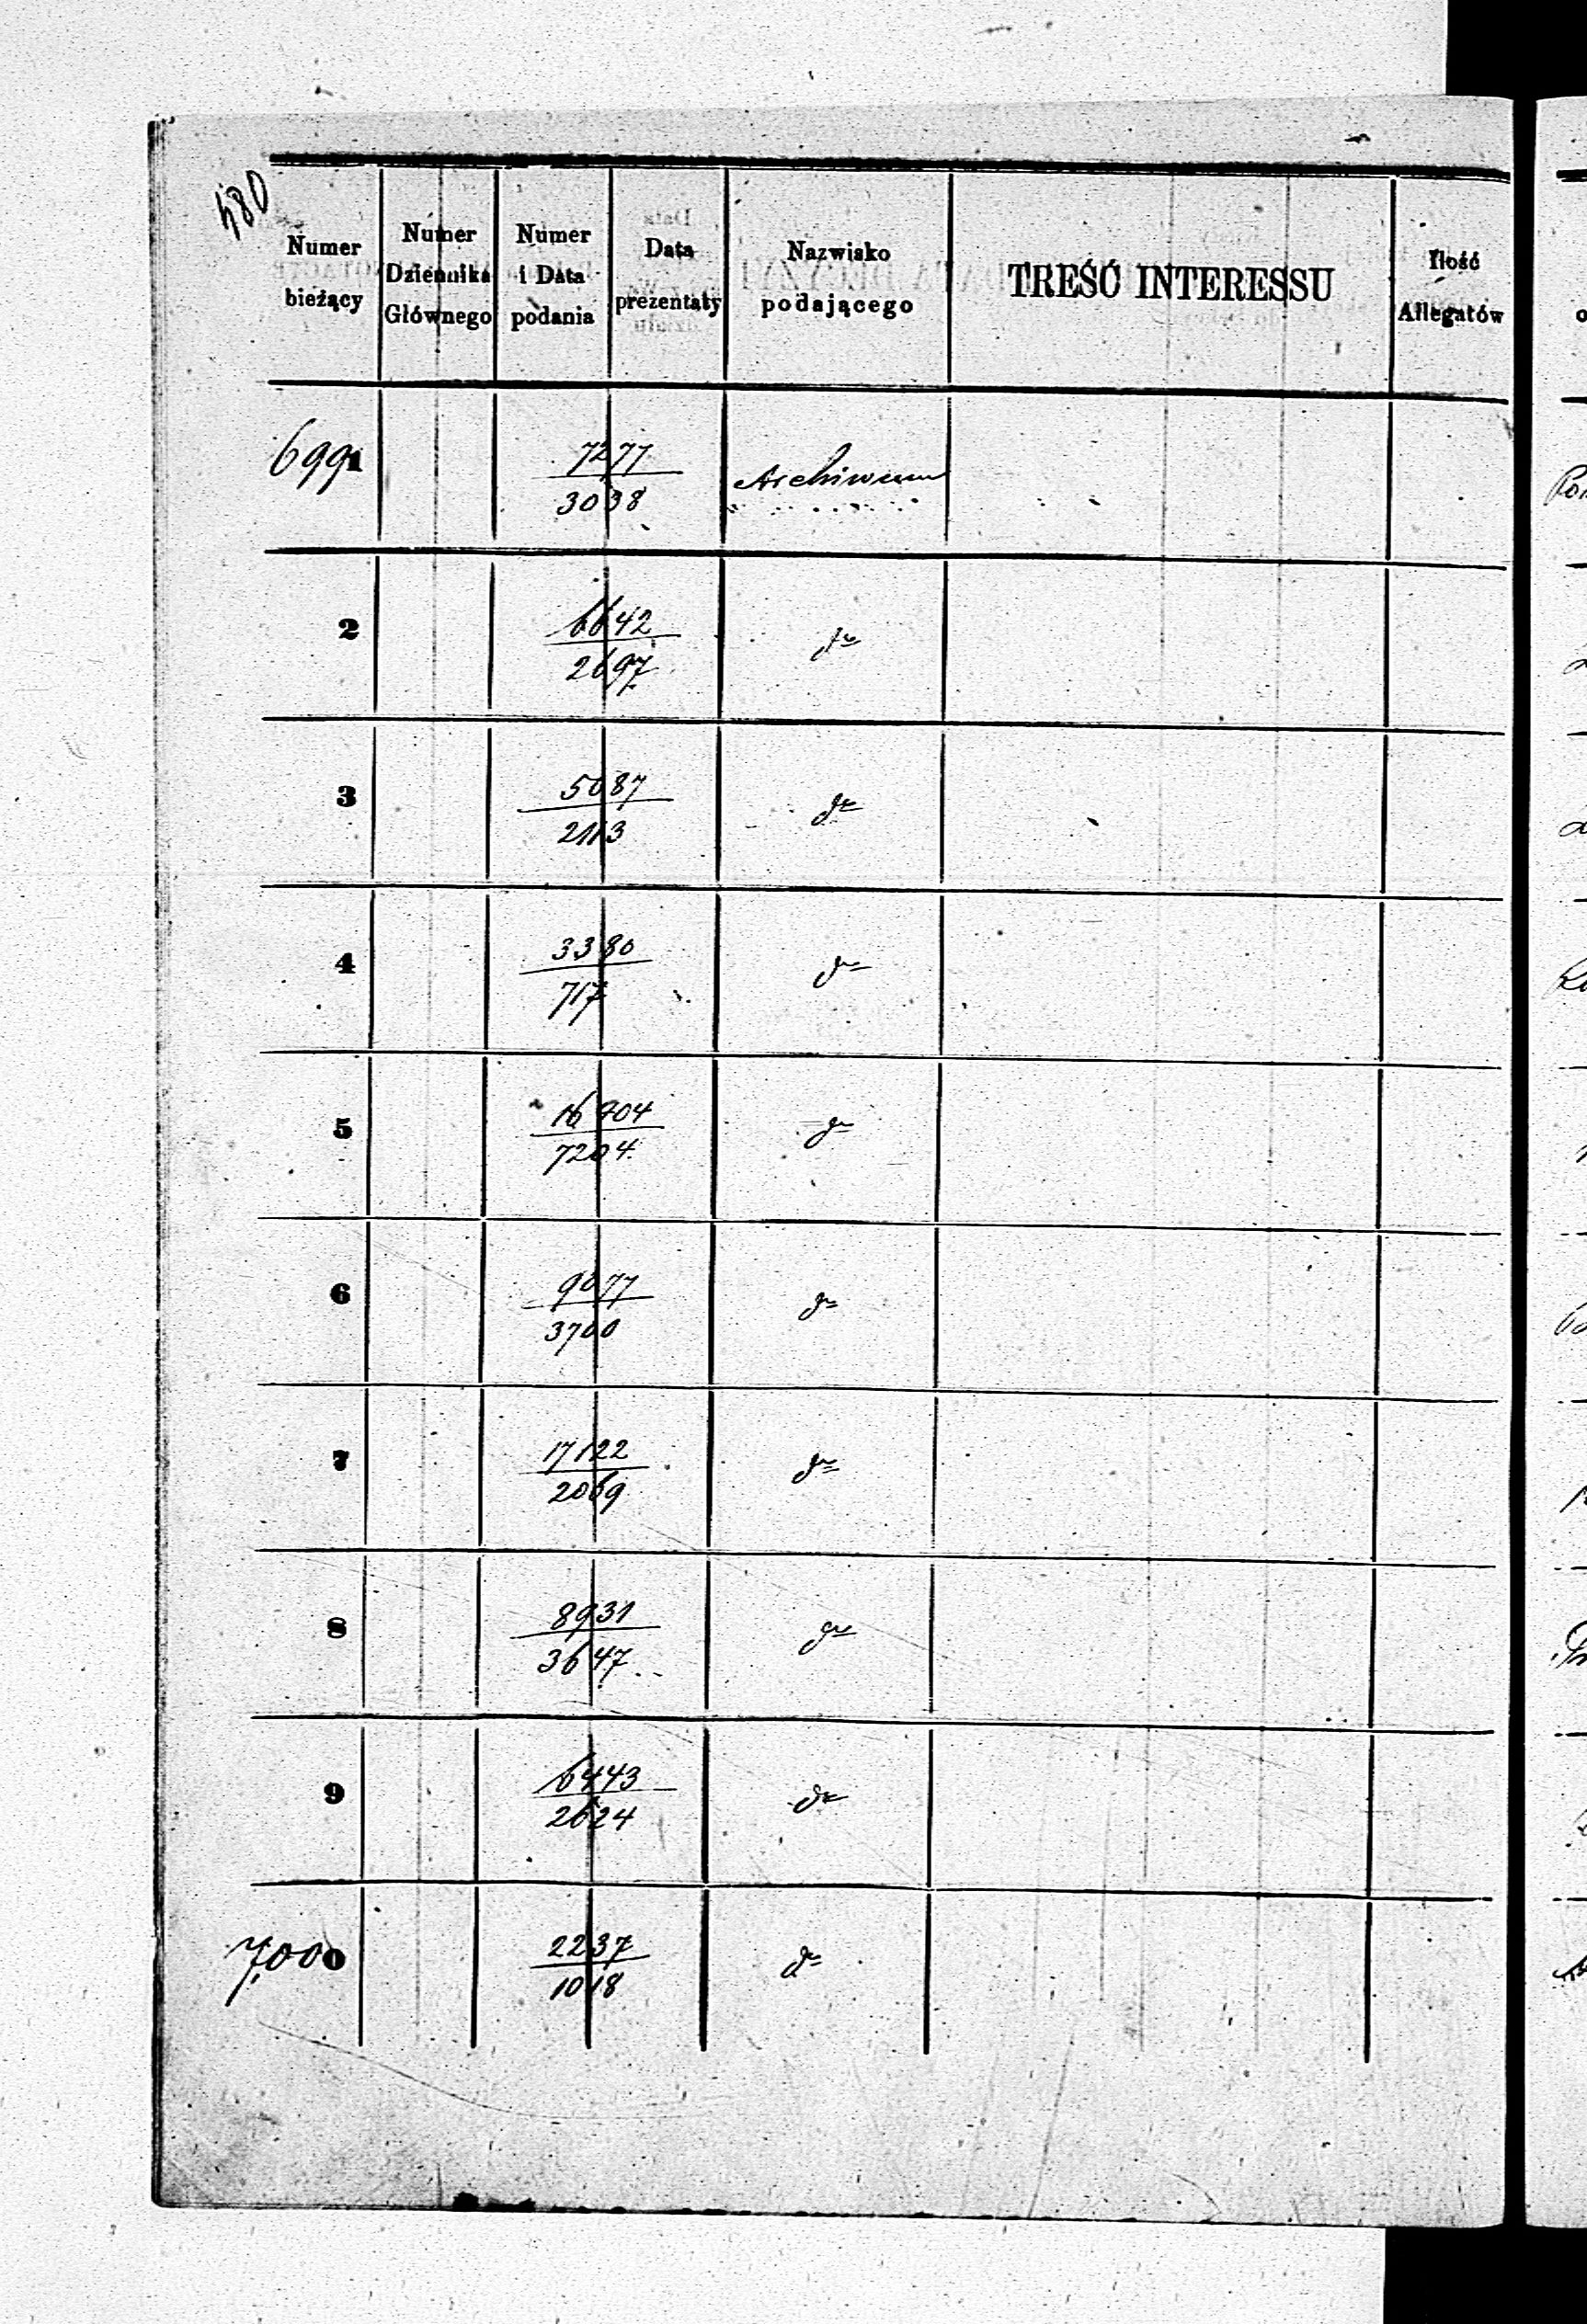 480
Numer bieżący
Numer Dziennika Głównego
Numer i Data podania
Data prezentaty
Nazwisko podającego
TREŚĆ INTERESSU
Ilość Allegatów
6991 7277 Archiwum
3038
2 6642 do
2697
3 5087 do
2113
4 3380 do
717
5 16904 do
7204
6 9077 do
3700
7 17122 do
2069
8 8931 do
3647
9 6443 do
2624
7000 2237 do
1018